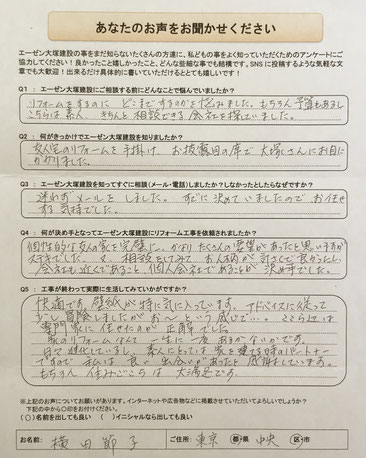 あなたのお声をお聞かせください
エーゼン大塚建設の事をまだ知らないたくさんの方達に、私どもの事をよく知っていただくためのアンケートにご
協力してください！良かったこと嬉しかったこと、どんな些細な事でも結構です。SNSに投稿するような気軽な文
章でも大歓迎！出来るだけ具体的に書いていただけるととても嬉しいです！
Q1 ： エーゼン大塚建設にご相談する前にどんなことで悩んでいましたか？
リフォームをするのに どこまでするのかを悩みました。もちろん予算もあるし
こちらは素人、きちんと相談できる会社を探していました。
Q2 ： 何がきっかけでエーゼン大塚建設を知りましたか？
友人宅のリフォームを手掛け、お披露目の席で大塚さんにお目に
かかりました。
Q3 ： エーゼン大塚建設を知ってすぐに相談（メール・電話）しましたか？しなかったとしたらなぜですか？
迷わずメールをしました。すでに決めていましたのでお任せ
する気持でした。
Q4 ： 何が決め手となってエーゼン大塚建設にリフォーム工事を依頼されましたか？
個性的な友人の家を完璧に、かなりたくさんの要望があったと思いますが
ステキでした。又、相談をしてみてお人柄が とても良かったし
会社も近くであること、個人会社であることが決め手でした。
Q5 ： 工事が終わって実際に生活してみていかがですか？
快適です。壁紙が特に気に入っています。アドバイスに従って
少し冒険しましたが お〜という感じで…。ここら辺は
専門家に任せたのが正解でした。
家のリフォームなんて一生に一度あるかないかです。
日々進化しているし、素人にとっては家を建てる時のパートナー
ですので 私は良い出会いがあったと感謝しています。
もちろん住みごこちは大満足です。
※上記のお声についてお願いがあります。インターネットや広告物などに掲載させていただいてよろしいでしょうか？
下記の中から○印をお付けください。
(○)名前を出しても良い ( )イニシャルなら出しても良い
お名前： 横田 節子 ご住所： 東京 都・県 中央 区・市